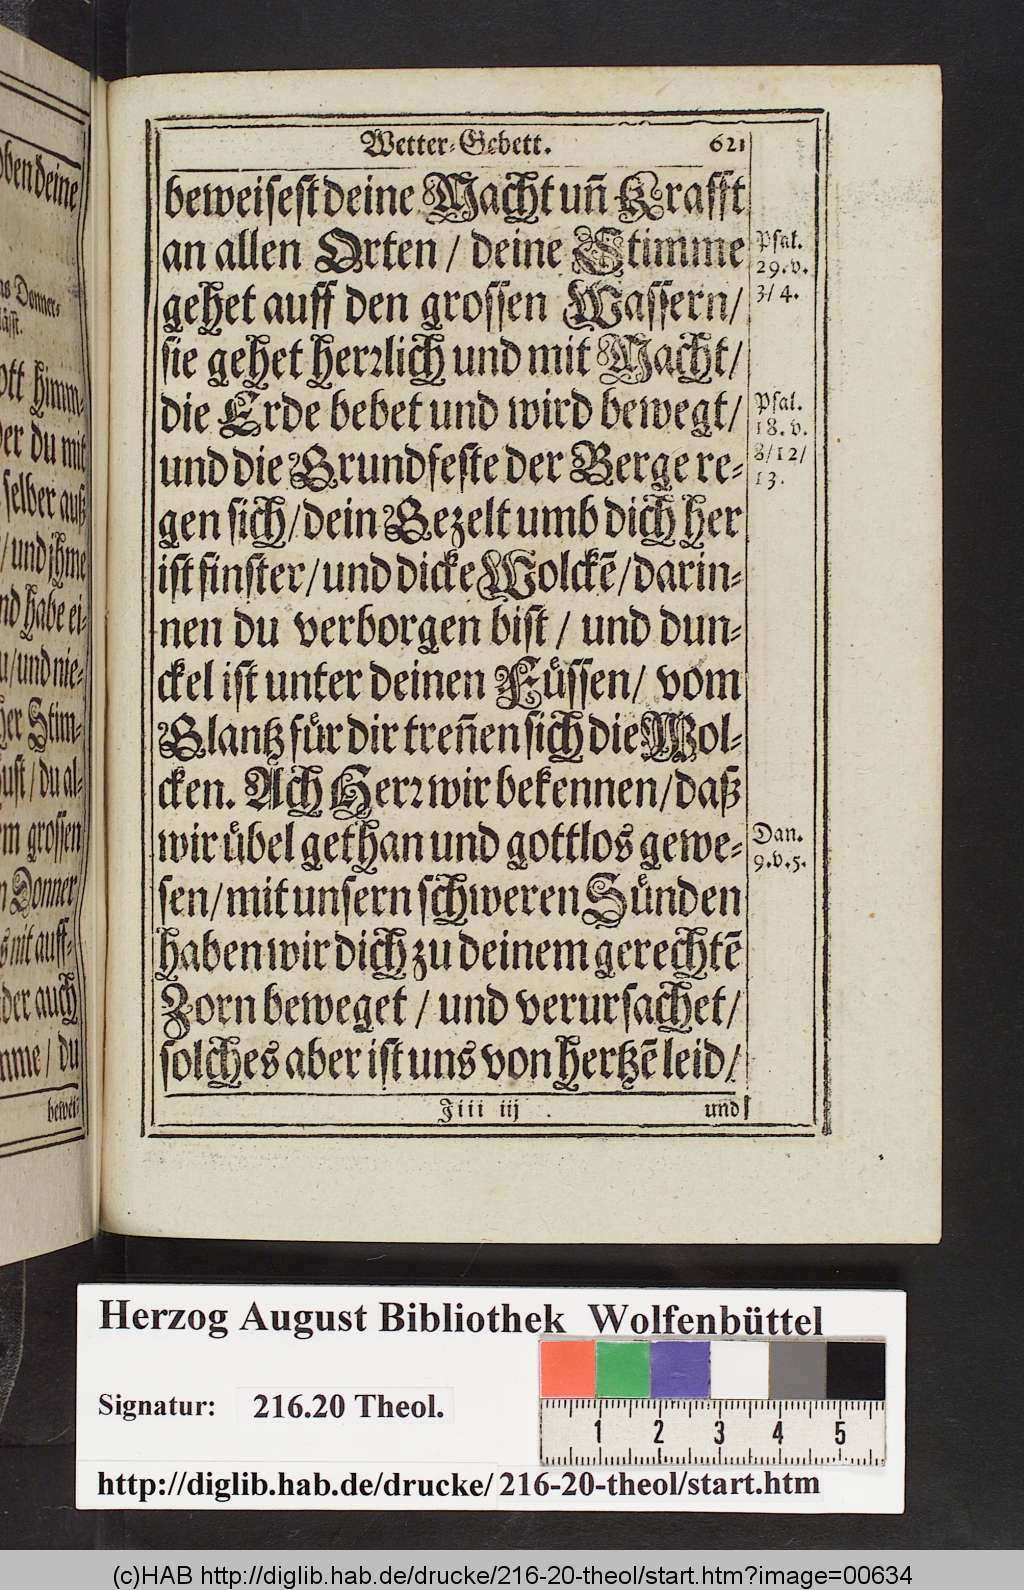 oben deine
as Donner-
läst.
ott himm-
der du mit
selber auß
/ und jhme
nd habe ei-
u/ und nie-
her Stim-
ust / du al-
em grossen
n Donner
s nit auff-
der auch
mme / du
bewei-
Wetter-Gebett. 621
beweisest deine Macht uñ Krafft
an allen Orten / deine Stimme
gehet auff den grossen Wassern/
sie gehet herꝛlich und mit Macht/
die Erde bebet und wird bewegt/
und die Grundfeste der Berge re-
gen sich/ dein Gezelt umb dich her
ist finster/ und dicke Wolckẽ/ darin-
nen du verborgen bist / und dun-
ckel ist unter deinen Füssen/ vom
Glantz für dir treñen sich die Wol-
cken. Ach Herꝛ wir bekennen/ daß
wir übel gethan und gottlos gewe-
sen/ mit unsern schweren Sünden
haben wir dich zu deinem gerechtẽ
Zorn beweget / und verursachet/
solches aber ist uns von hertzẽ leid/
Jiii iij .
und
Psal.
29. v.
3/ 4.
Psal.
18. v.
8/ 12/
13.
Dan.
9. v. 5.
Herzog August Bibliothek Wolfenbüttel
Signatur: 216.20 Theol.
1 2 3 4 5
http://diglib.hab.de/drucke/ 216-20-theol/start.htm
(c)HAB http://diglib.hab.de/drucke/216-20-theol/start.htm?image=00634